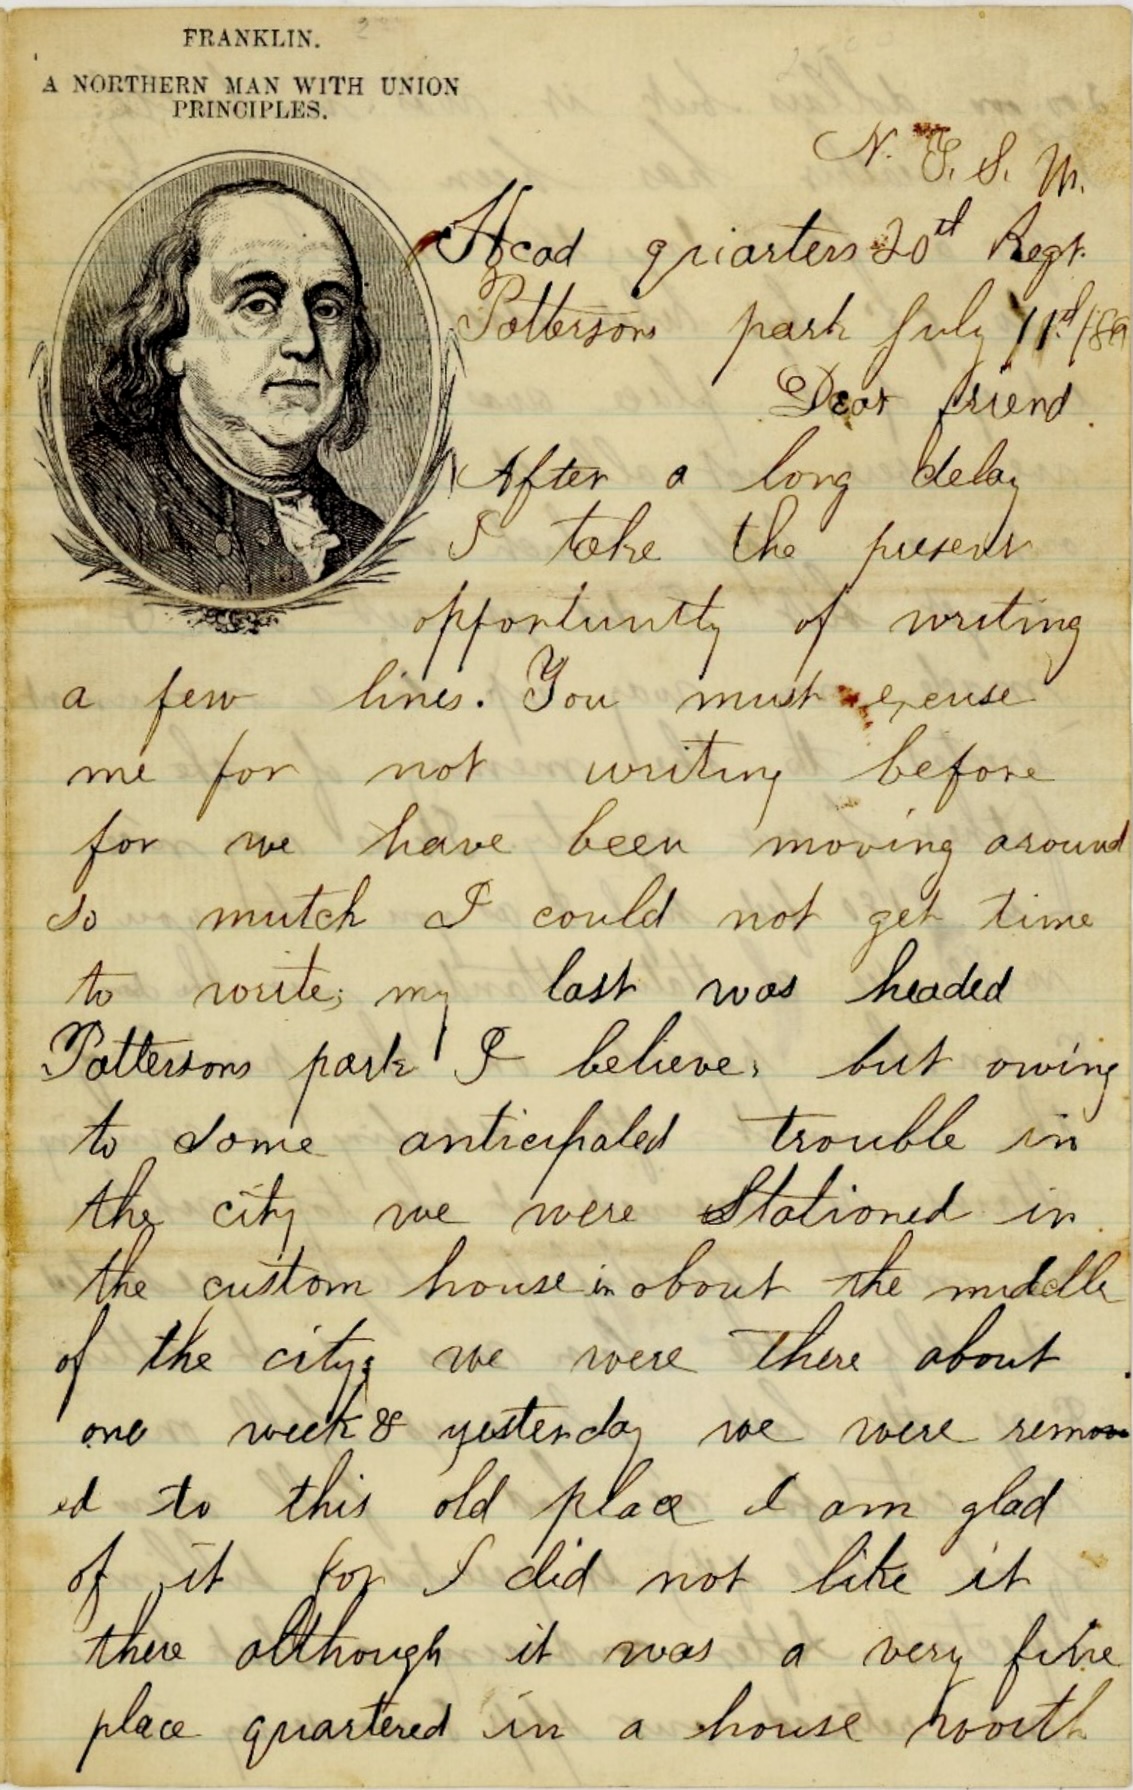 FRANKLIN.
A NORTHERN MAN WITH UNION
PRINCIPLES.
N. Y. S. M.
Head quarters 20th Regt.
Pattersons park July 11th
Dear friend.
After a long delay
I take the present
opportunity of writing
a few lines. You must excuse
me for not writing before
for we have been moving around
so mutch I could not get time
to write; my last was headed
Pattersons park I believe, but owing
to some anticipated trouble in
the city we were Stationed in
the custom house in about the middle
of the city; we were there about
one week & yesterday we were remov
ed to this old place I am glad
of it for I did not like it
there although it was a very fine
place quartered in a house worth